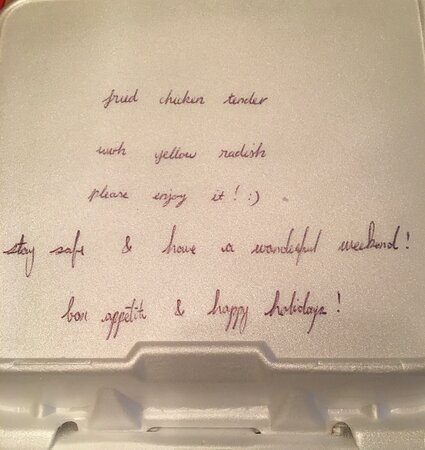 fried chicken tender
with yellow radish
please enjoy it! :)
stay safe & have a wonderful weekend!
bon appétit & happy holidays!